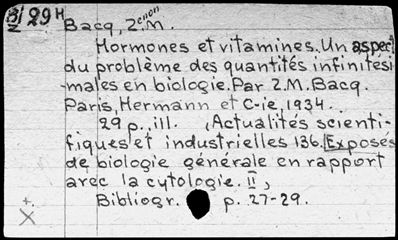 B/29H
2
Bacq, Z.M.
enon
Hormones et vitamines. Un aspect
du problème des quantités infinitési-
-males en biologie. Par Z.M. Bacq.
Paris, Hermann et C-ie, 1934.
29 p., ill. (Actualités scienti-
fiques et industrielles 136. [Exposés
de biologie générale en rapport
avec la cytologie. II,
Bibliogr. p. 27-29.
+
X